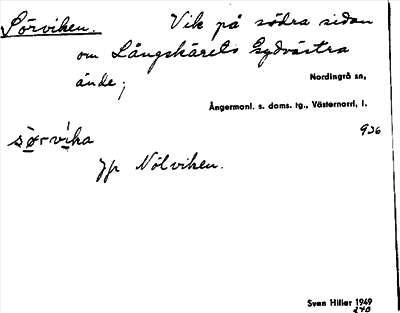 Sörviken. Vik på södra sidan
om Långskärets sydvästra
ände;
Nordingrå sn,
Ångermanl. s. doms. tg., Västernorrl, l.
936
sørvika
Jfr Nölviken.
Sven Hiller 1949
270